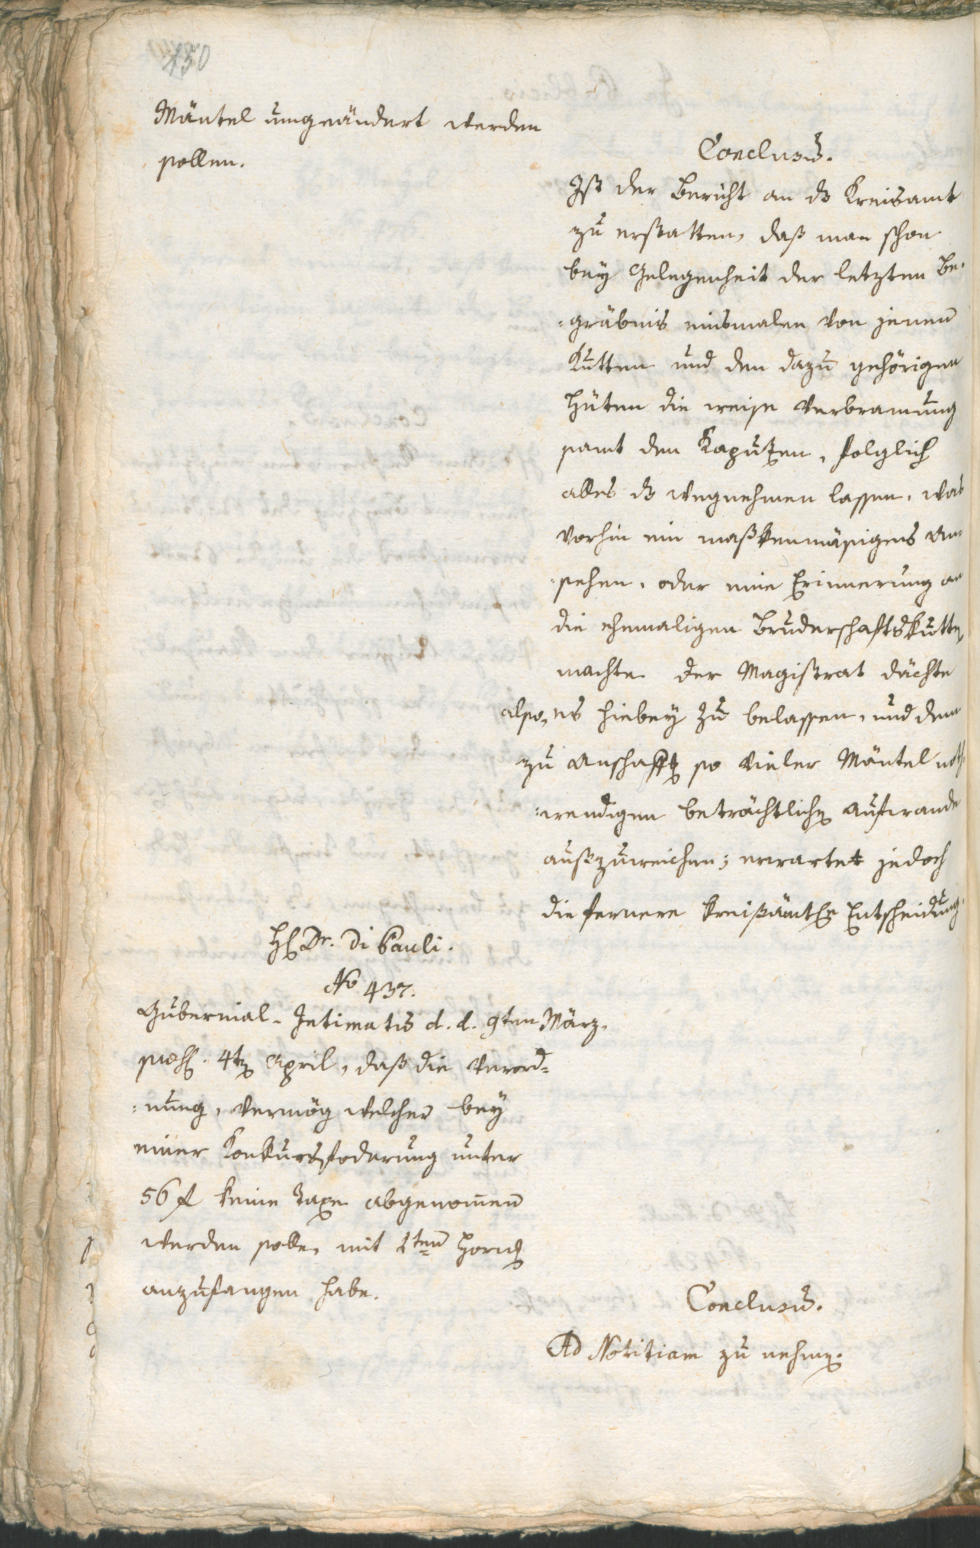 450
Mäntel umgeändert werden
sollen.
Conclusū.
Ist der Bericht an ds Kreisamt
zu erstatten, daß man schon
bey Gelegenheit der letzten Be-
gräbnis einsmalen von jenen
Kutten und den dazu gehörigen
Hüten die weise Verbramung
samt den Kaputzen, folglich
alles ds wegnehmen lassen, was
vorhin ein maßkenmäsigens An
sehen, oder eine Erinnerung an
die ehemaligen Bruderschaftskutten
machte. Der Magistrat dächte
also, es hiebey zu belassen, und dem
zu Anschaffg so vieler Mäntel noth
wendigen beträchtlichen Aufwande
auszuweichen; erwartet jedoch
die fernere kreisämtle Entscheidung.
H Dr. Di Pauli.
No 437.
Gubernial-Intimatis d. d. 9ten März,
praes. 4t April, daß die Verord=
=nung, vermög welcher bey
einer Konkursfoderung unter
56 f keine Taxe abgenom̄en
werden solle, mit 1ten
anzufangen habe.
Conclusū.
Ad Notitiam zu nehmen.